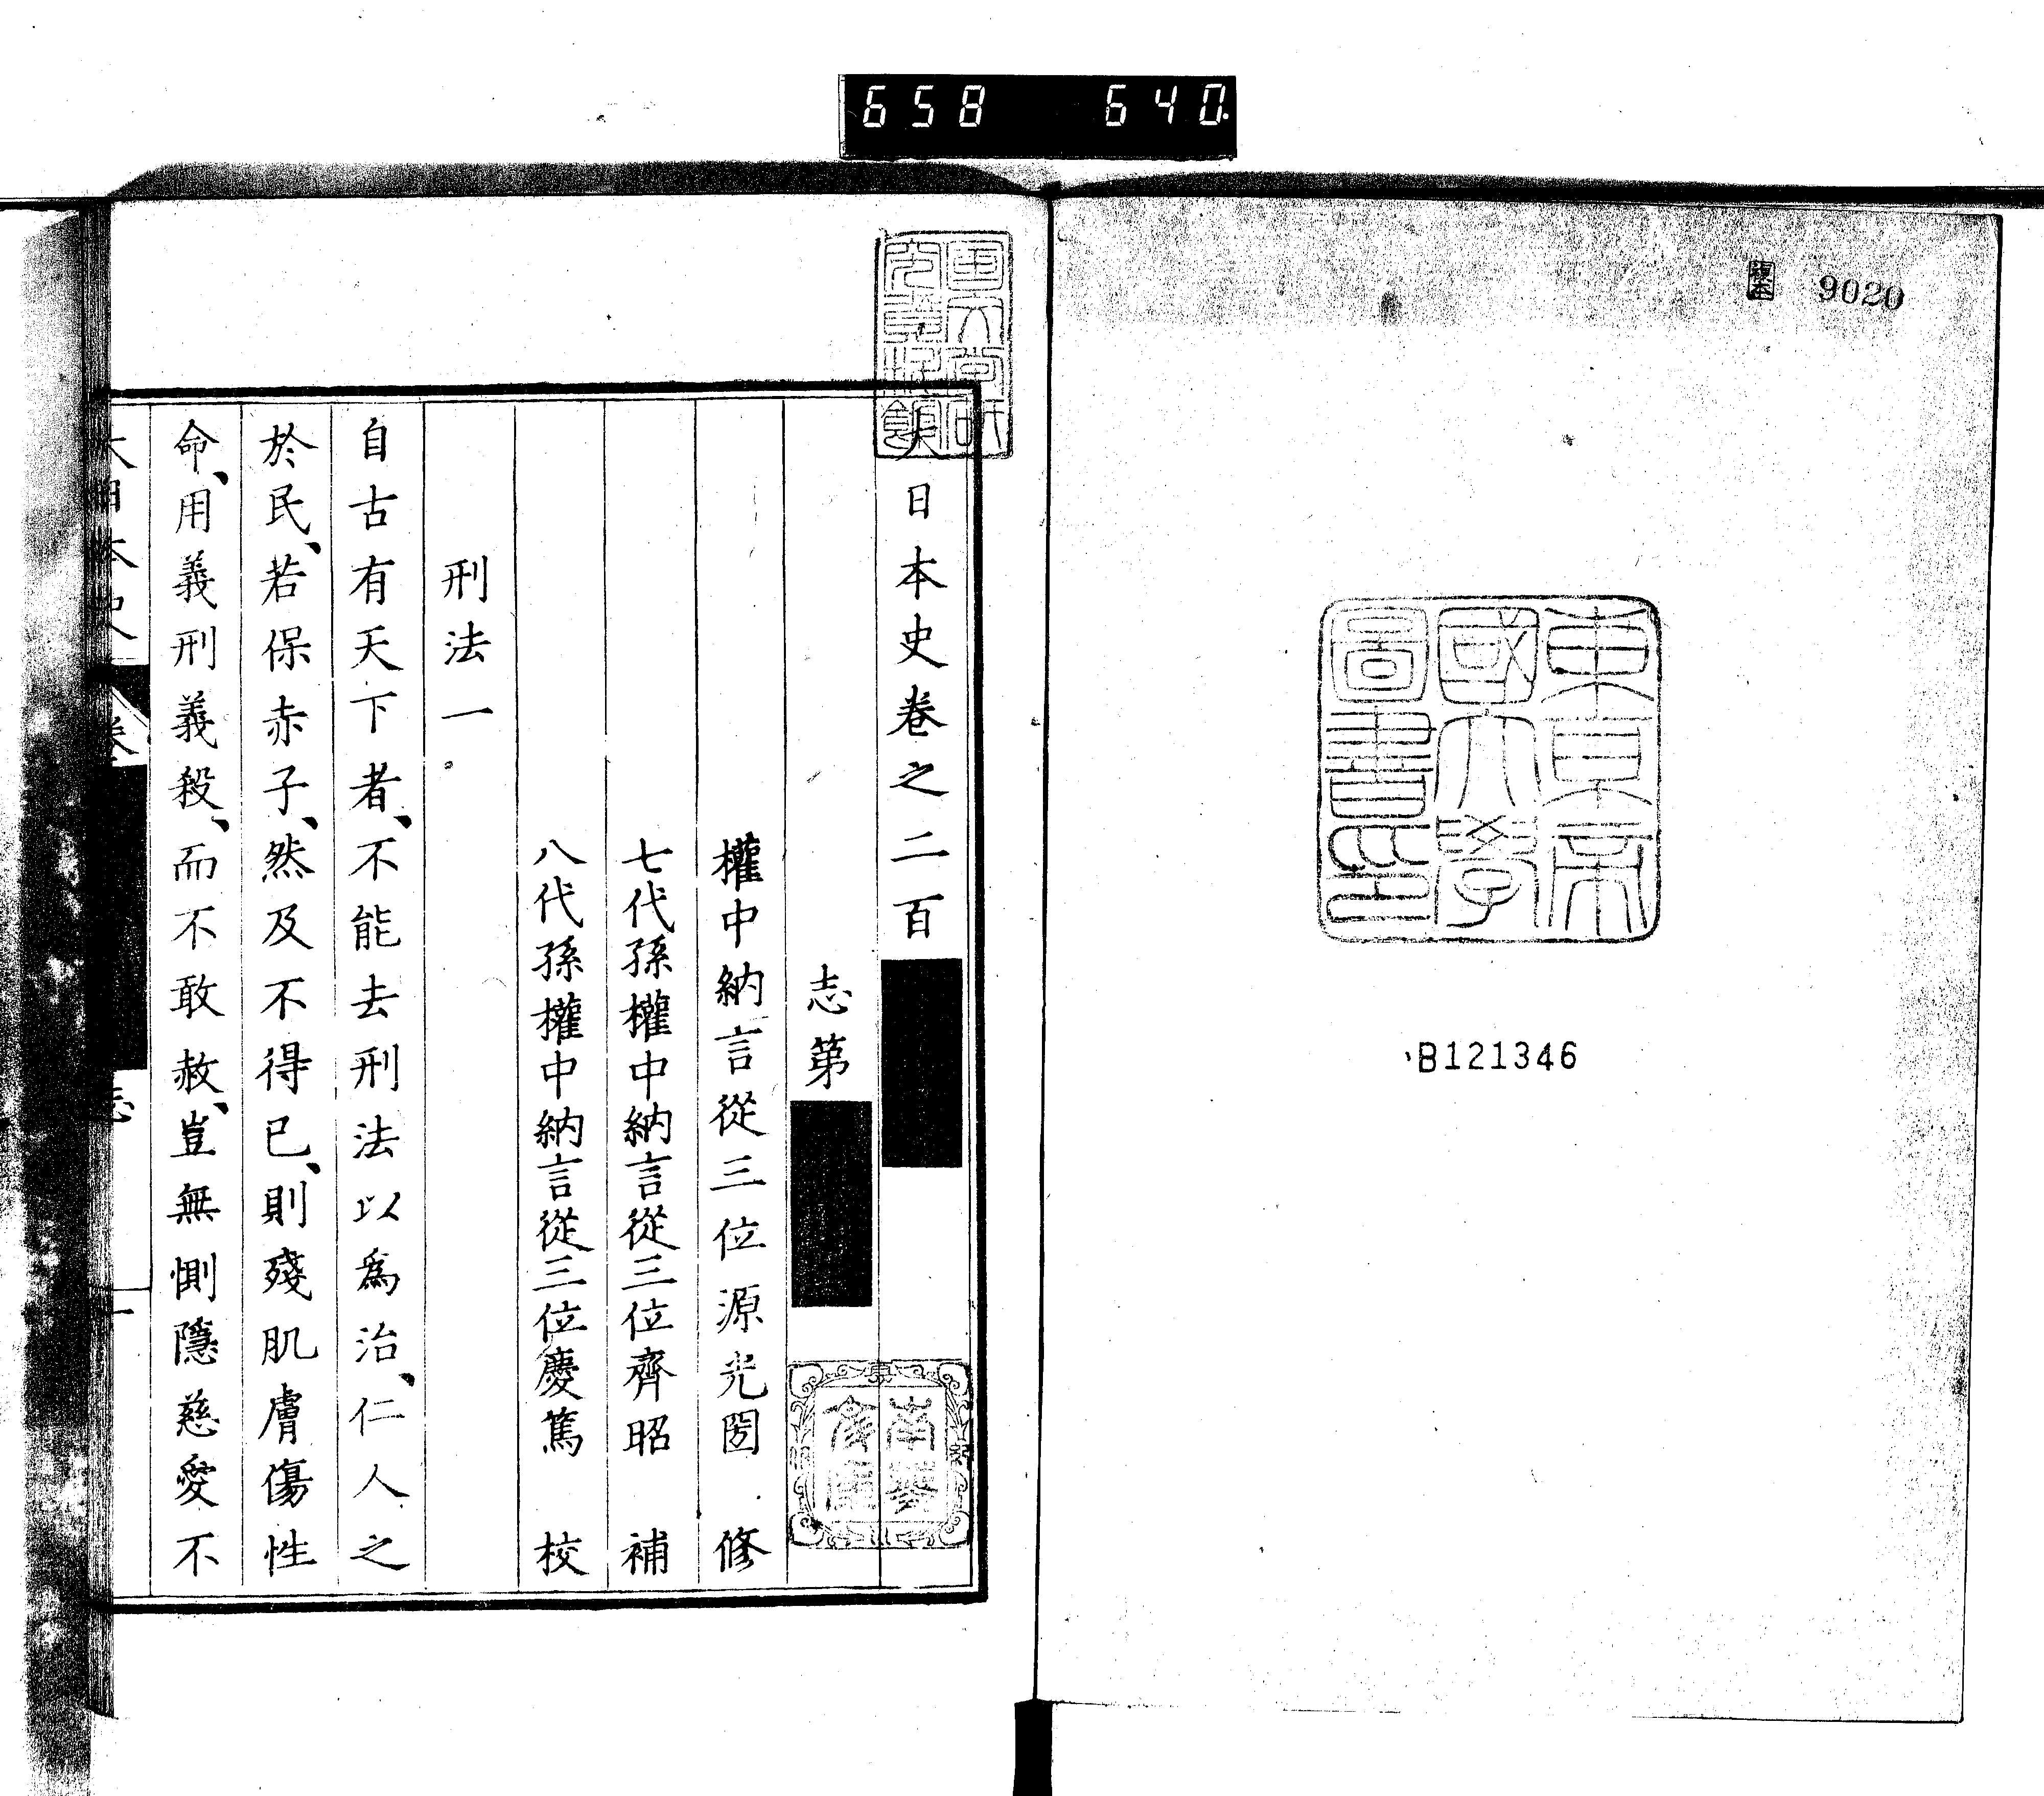 658 640
複本 9020
東京帝
國大學
圖書印
B121346
大日本史卷之二百
志第
權中納言從三位源光圀 修
七代孫權中納言從三位齊昭 補
八代孫權中納言從三位慶篤 校
刑法一
自古有天下者、不能去刑法以爲治、仁人之
於民、若保赤子、然及不得已、則殘肌膚傷性
命、用義刑義殺、而不敢赦、豈無惻隱慈愛不
大日本史 卷 志 一
南葵
文庫